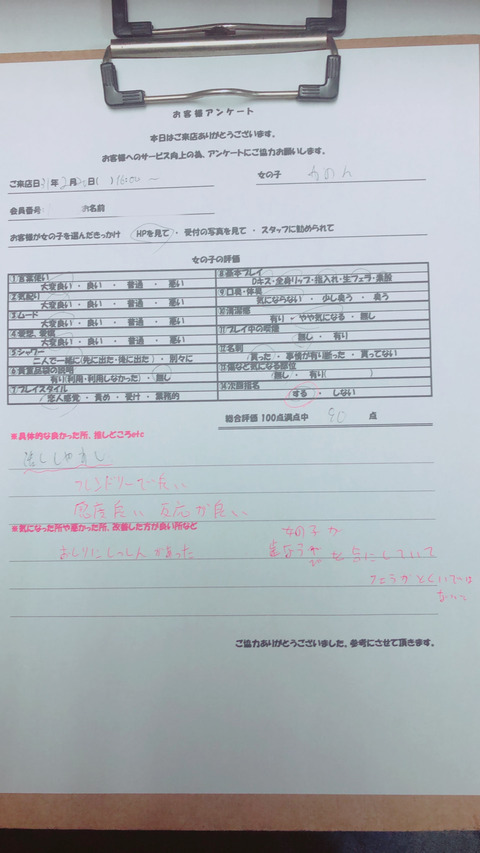 お客様アンケート
本日はご来店ありがとうございます。
お客様へのサービス向上の為、アンケートにご協力お願いします。
ご来店日31年2月 日( ) 16:00〜 女の子 かのん
会員番号: お名前
お客様が女の子を選んだきっかけ HPを見て・受付の写真を見て・スタッフに勧められて
女の子の評価
①言葉使い
大変良い・良い・普通・悪い
②気配り
大変良い・良い・普通・悪い
③ムード
大変良い・良い・普通・悪い
④愛想、愛嬌
大変良い・良い・普通・悪い
⑤シャワー
二人で一緒に(先に出た・後に出た)・別々に
⑥貴重品袋の説明
有り(利用・利用しなかった)・無し
⑦プレイスタイル
恋人感覚・責め・受け・業務的
⑧基本プレイ
Dキス・全身リップ・指入れ・生フェラ・素股
⑨口臭・体臭
気にならない・少し臭う・臭う
⑩清潔感
有り・やや気になる・無し
⑪プレイ中の喫煙
無し・有り
⑫名刺
貰った・事情が有り断った・貰ってない
⑬傷など気になる部位
無し・有り( )
⑭次回指名
する・しない
総合評価 100点満点中 90 点
※具体的な良かった所、推しどころetc
話しし易し
フレンドリーで良い
感度良い 反応が良い
※気になった所や悪かった所、改善した方が良い所など
おしりにしっしんがあった
女の子が
を気にしていて
フェラがとくいでは
ないと
ご協力ありがとうございました、参考にさせて頂きます。